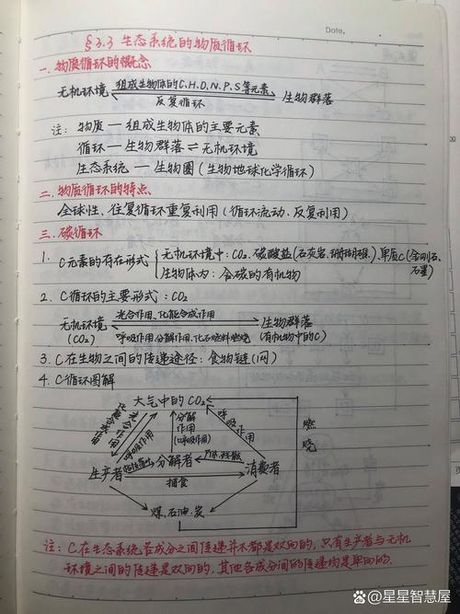 Date.
§3.3 生态系统的物质循环
一. 物质循环的概念
无机环境 组成生物体的C.H.O.N.P.S等元素 生物群落
反复循环
注: 物质 — 组成生物体的主要元素
循环 — 生物群落 ⇌ 无机环境
生态系统 — 生物圈 (生物地球化学循环)
二. 物质循环的特点
全球性、往复循环重复利用 (循环流动、反复利用)
三. 碳循环
1. C元素的存在形式 { 无机环境中: CO₂, 碳酸盐 (石灰岩、珊瑚礁), 单质C (金刚石、石墨)
生物体内: 含碳的有机物
2. C循环的主要形式: CO₂
光合作用、化能合成作用
无机环境 生物群落
(CO₂) 呼吸作用、分解作用、化石燃料燃烧 (有机物中的C)
3. C在生物之间的传递途径: 食物链(网)
4. C循环图解
大气中的CO₂
光合作用
呼吸作用
分解作用
(呼吸作用)
呼吸作用
燃烧
生产者 分解者 尸体、残骸 消费者
捕食
煤、石油、炭
注: C在生态系统各成分之间传递并不都是双向的, 只有生产者与无机
环境之间的传递是双向的, 其他各成分间的传递均是单向的.
@星星智慧屋